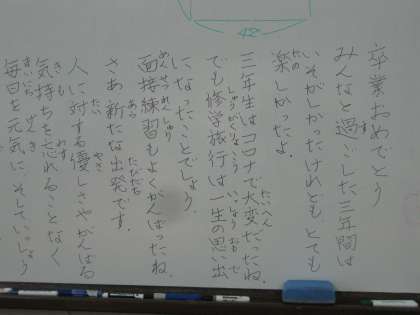 42
卒業おめでとう
みんなと過ごした三年間は
いそがしかったけれども、とても
楽しかったよ。
三年生はコロナで大変だったね。
でも修学旅行は一生の思い出
になったことでしょう。
面接練習もよくがんばったね。
さあ新たな出発です。
人に対する優しさやがんばる
気持ちを忘れることなく
毎日を元気に、そしていっしょう